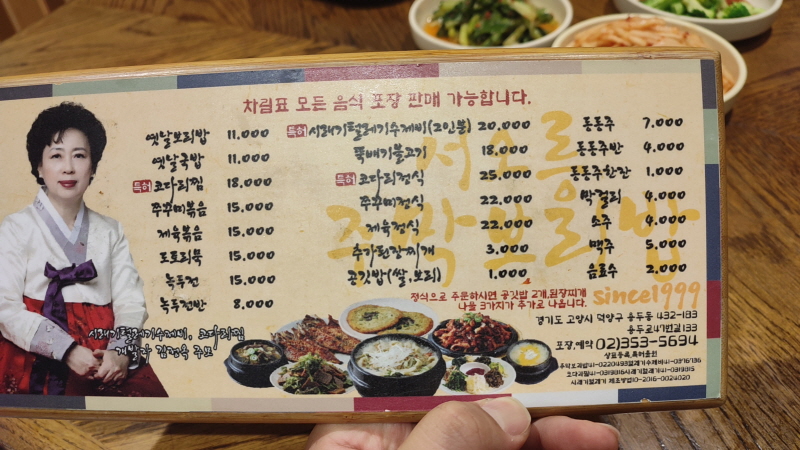 차림표 모든 음식 포장 판매 가능합니다.
옛날보리밥 11.000
옛날국밥 11.000
특허 코다리찜 18.000
쭈꾸미볶음 15.000
제육볶음 15.000
도토리묵 15.000
녹두전 15.000
녹두전반 8.000
특허 시래기털레기수제비(2인분) 20.000
뚝배기불고기 18.000
특허 코다리정식 25.000
쭈꾸미정식 22.000
제육정식 22.000
추가된장찌개 3.000
공깃밥(쌀,보리) 1.000
동동주 7.000
동동주반 4.000
동동주한잔 1.000
막걸리 4.000
소주 4.000
맥주 5.000
음료수 2.000
서오릉
주막보리밥
since1999
정식으로 주문하시면 공깃밥 2개,된장찌개
나물 3가지가 추가로 나옵니다.
경기도 고양시 덕양구 용두동 432-183
용두로47번길 133
포장,예약 02)353-5694
상표등록,특허출원
시래기털레기수제비, 코다리찜
개발자 김정숙 주모